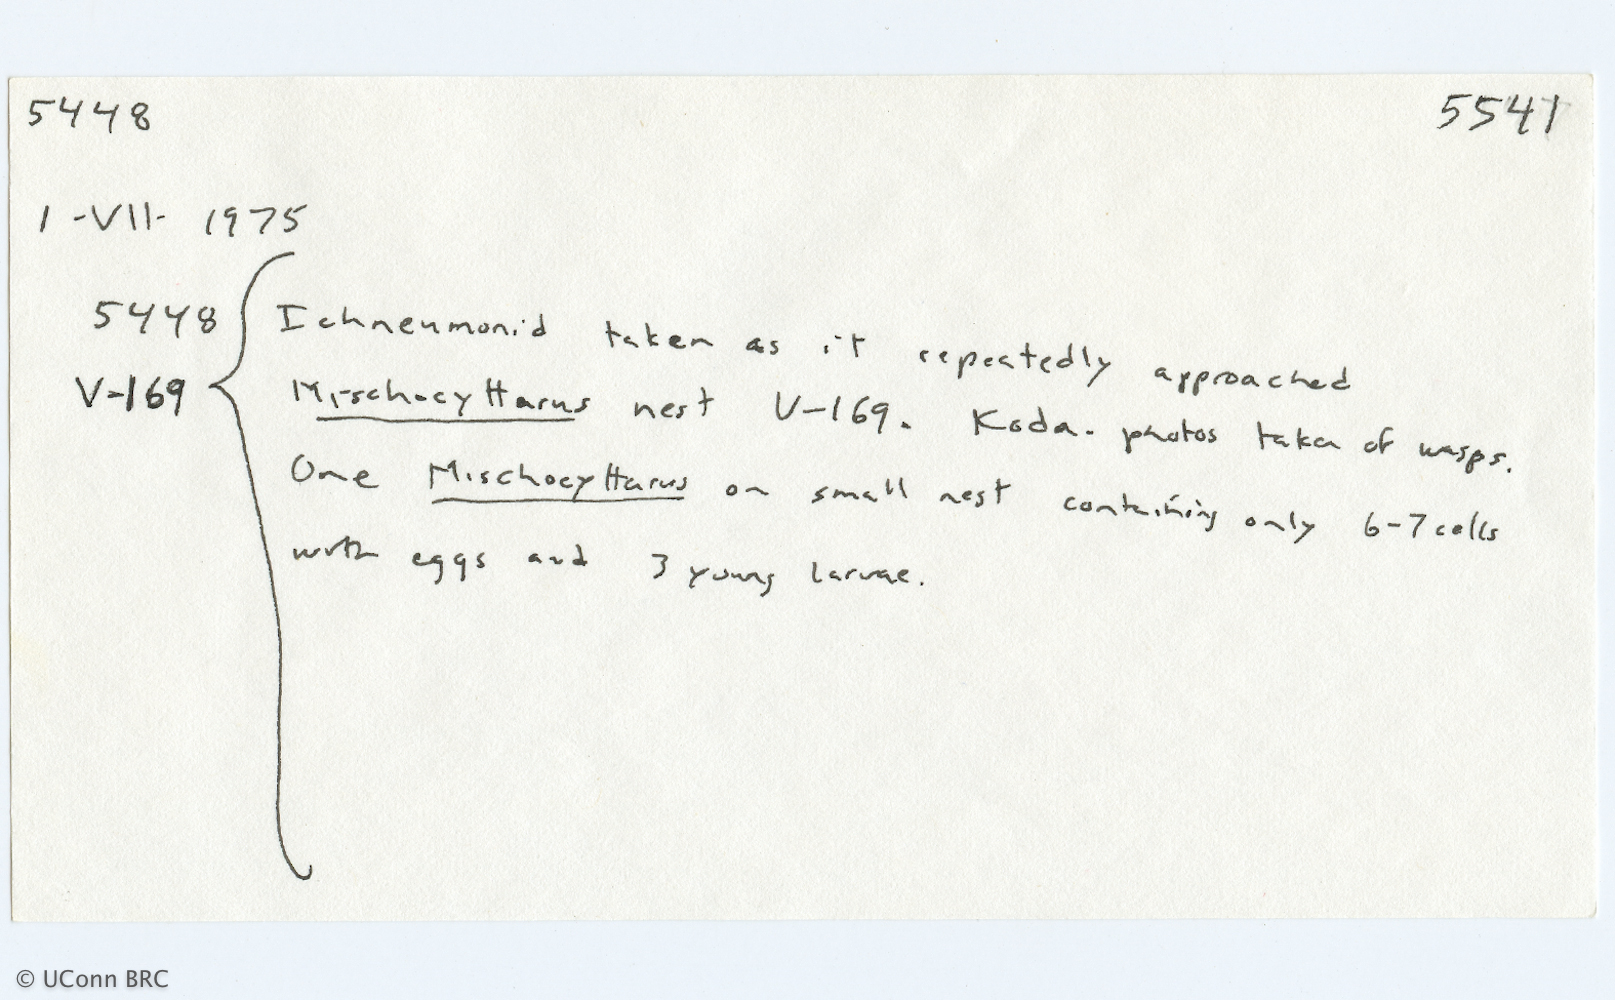 5448 5541
1 -VII- 1975
5448 Ichneumonid taken as it repeatedly approached
V-169 Mischocyttarus nest V-169. Koda. photos taken of wasps.
One Mischocyttarus on small nest containing only 6-7 cells
with eggs and 3 young larvae.
© UConn BRC